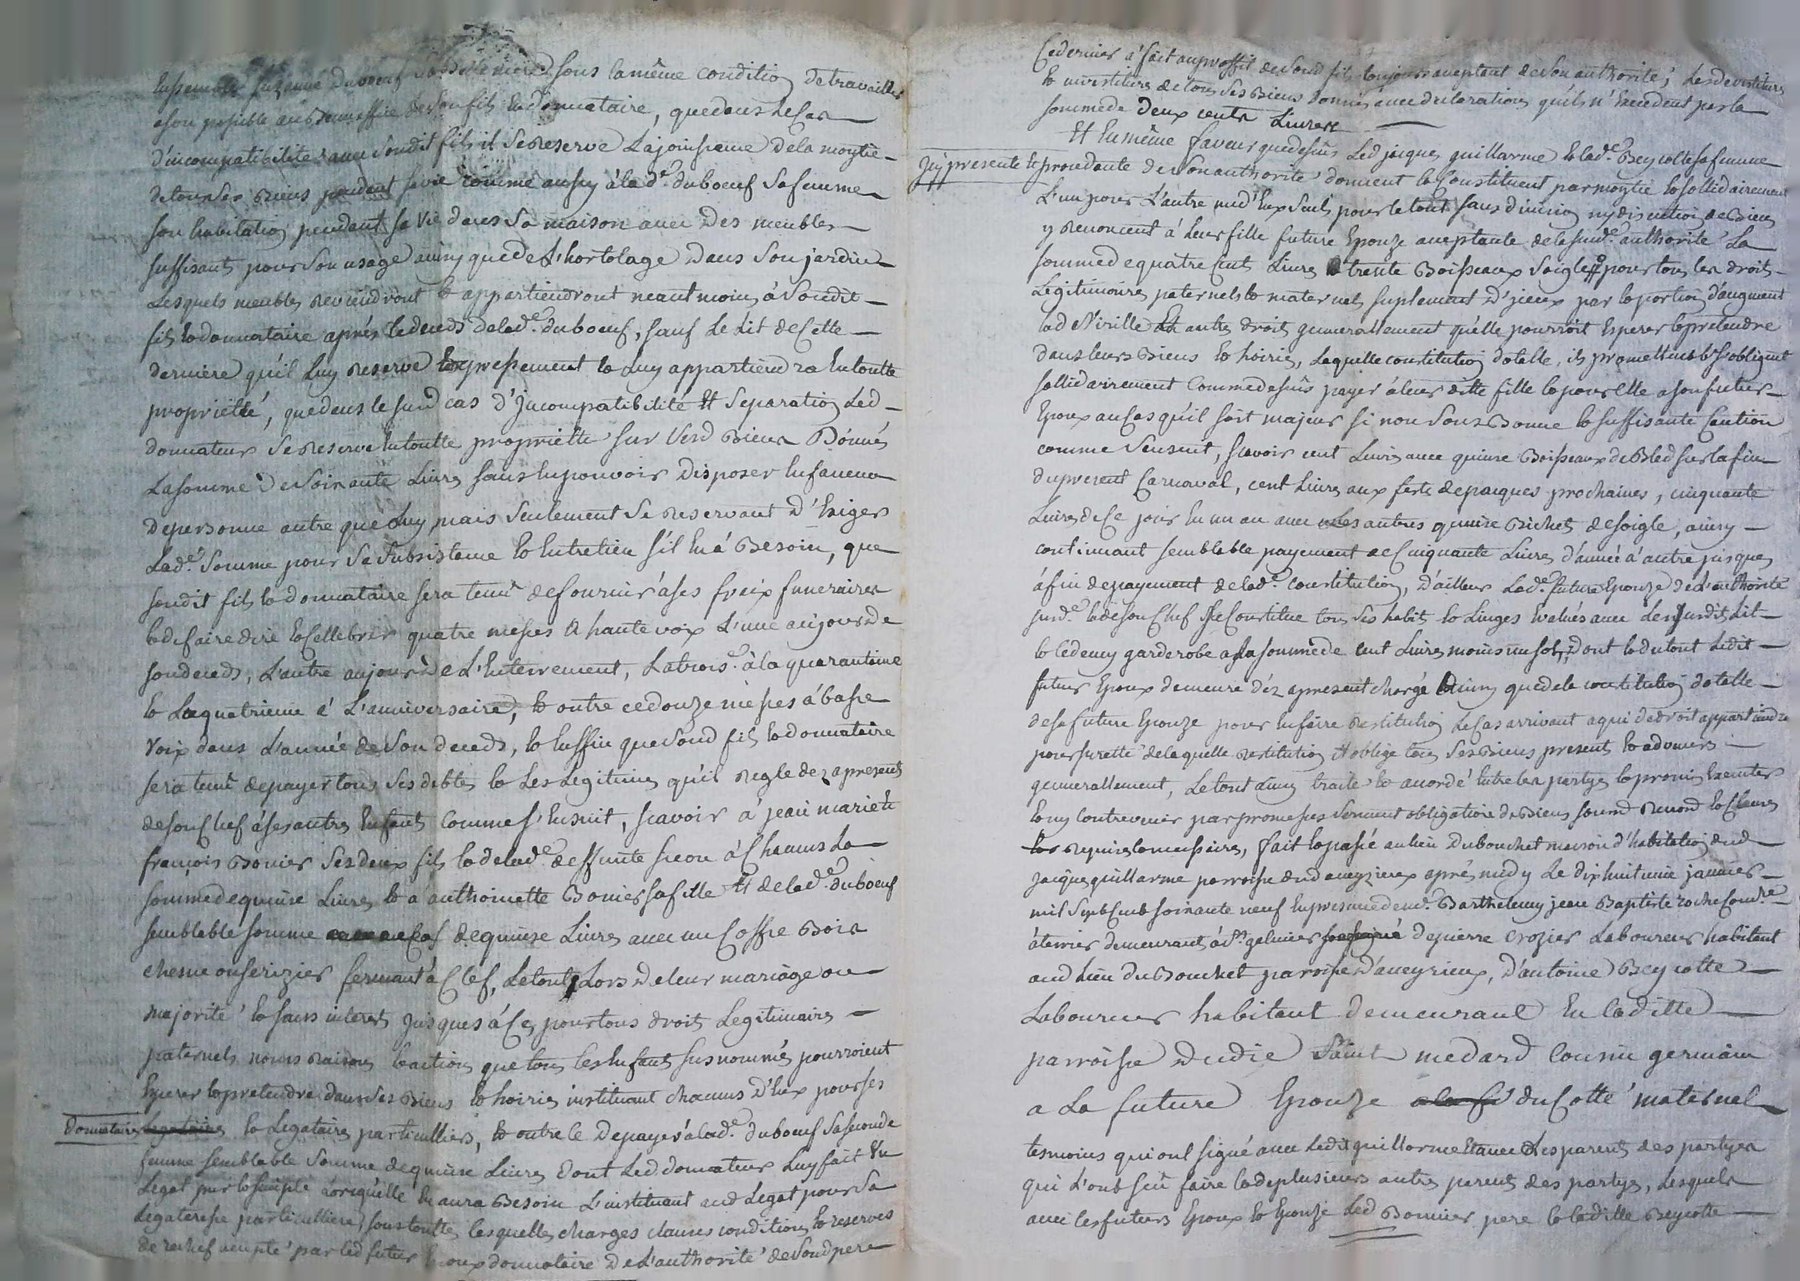 sous la même condition de travailler
a son possible au benneffice de son fils et donnataire, que dans le cas
d'incompatibilité avec sondit fils il se reserve la jouissence de la moytié
de tous ses biens pendant sa vie comme aussy à lad.e duboeuf sa femme
son habitation pendant sa vie dans sa maison avec des meubles
suffisants pour son usage ainsy que de l'hortolage dans son jardin
lesquels meubles reviendront et appartiendront neantmoins à sondit
fils et donnataire après le deceds de lad.e duboeuf, sauf le lit de cette
derniere qu'il luy reserve expressement et luy appartiendra en toutte
proprietté, que dans le susd cas d'incompatibilité et separation led
donnateur se reserve en toutte proprietté sur sesd biens donnés
la somme de soixante livres sans en pouvoir disposer en faveur
de personne autre que luy, mais seulement se reservant d'exiger
lad.e somme pour sa subsistence et entretien s'il en à besoin, que
sondit fils et donnataire sera tenu de fournir à ses fraix funeraires
et de faire dire et cellebrer quatre messes a haute voix l'une au jour de
son deceds, l'autre au jour de l'enterrement, la trois.e à la quarantaine
et la quatrieme à l'anniversaire, et outre ce douze messes à basse
voix dans l'année de son deceds, et enffin que sond fils et donnataire
sera tenu de payer tous ses debtes et les legitimes qu'il regle dez apresent
de son chef à ses autres enfants comme s'ensuit, scavoir à jean marie et
françois bonier ses deux fils et de lad.e deffunte à chacuns la
somme de quinze livres et a anthoinette bonier sa fille et de lad.e duboeuf
semblable somme de quinze livres avec un coffre bois
chesne ou serizier fermant à clef, le tout lors de leur mariage ou
majorité et sans interets jusques à ce, pour tous droits legitimaires
paternels noms raisons et actions que tous les enfants susnommés pourroient
esperer et pretendre dans ses biens et hoiries instituant chacuns d'eux pour ses
donnataires et legataires particulliers, et outre ce de payer à lad.e duboeuf sa seconde
femme semblable somme de quinze livres dont led donnateur luy fait un
legat pur et simple lorsqu'elle en aura besoin l'instituant aud legat pour sa
legateresse particulliere, sous touttes lesquelles charges clauses conditions et reserves
de rechef accepté par led futur epoux donnataire de l'authorité de sond pere
Ce dernier à fait au proffit de sond fils toujours acceptant de son authorité, les devestitures
et investitures de tous ses biens donnés avec declaration qu'ils n'excedent pas la
somme de deux cents livres
Et en même faveur que dessus led jacques guillarme et lad.e Beycotte sa femme
icy presente et procedante de son authorité donnent et constituent par moytié et sollidairement
l'un pour l'autre un d'eux seul pour le tout sans division ny discution de biens
y renoncent à leur fille future epouze acceptante de la susd.e authorité la
somme de quatre cent livres et trente boisseaux soigle pour tous les droits
legitimaires paternels et maternels suplement d'yceux part et portion d'augment
et autres droits generallement qu'elle pourroit esperer et pretendre
dans leurs biens et hoiries, laquelle constitution dotalle, ils promettent et s'obligent
sollidairement comme dessus payer à leur ditte fille et pour elle a son futur
epoux au cas qu'il soit majeur si non sous bonne et suffisante caution
comme s'ensuit, scavoir cent livres avec quinze boisseaux de bled sur la fin
du present carnaval, cent livres aux fette de pacques prochaines, cinquante
livres de ce jour en un an avec les autres quinze bichets de soigle, ainsy
continuant semblable payement de cinquante livres d'année à autre jusques
à fin de payement de lad.e constitution, d'ailleurs lad.e future epouze de l'authorité
susd.e et de son chef se constitue tous ses habits et linges evalués avec le susdit lit
et le demy garderobe a la somme de cent livres moins un sol, dont et du tout ledit
futur epoux demeure déz apresent chargé ainsy que de la constitution dotalle
de sa future epouze pour en faire restitution le cas arrivant a qui de droit appartiendra
pour suretté de laquelle restitution il oblige tous ses biens presents et advenirs
generallement, le tout ainsy traité et accordé entre les partyes et promis executer
et ny contrevenir par promesses serment obligation de biens soumis renonc et clauses
requises et necessaires, fait et passé au lieu du bouchet maison d'habitation dud
jacques guillarme parroisse dud aveyzieux après midy le dix huitieme janvier
mil sept cent soixante neuf en presence de m.e Barthelemy jean Baptiste roche
demeurant à s.t galmier de pierre crozier laboureur habitant
aud lieu du bouchet parroisse d'aveyzieux, d'antoine Beycotte
laboureur habitant demeurant en laditte
parroisse dudit saint medard cousin germain
a la future epouze du cotté maternel
tesmoins qui ont signé avec ledit guillarme et avec les parents des partyes
qui l'ont sçu faire et de plusieurs autres parents des partyes, lesquels
avec les futurs epoux et epouze led bonnier pere et laditte Beycotte